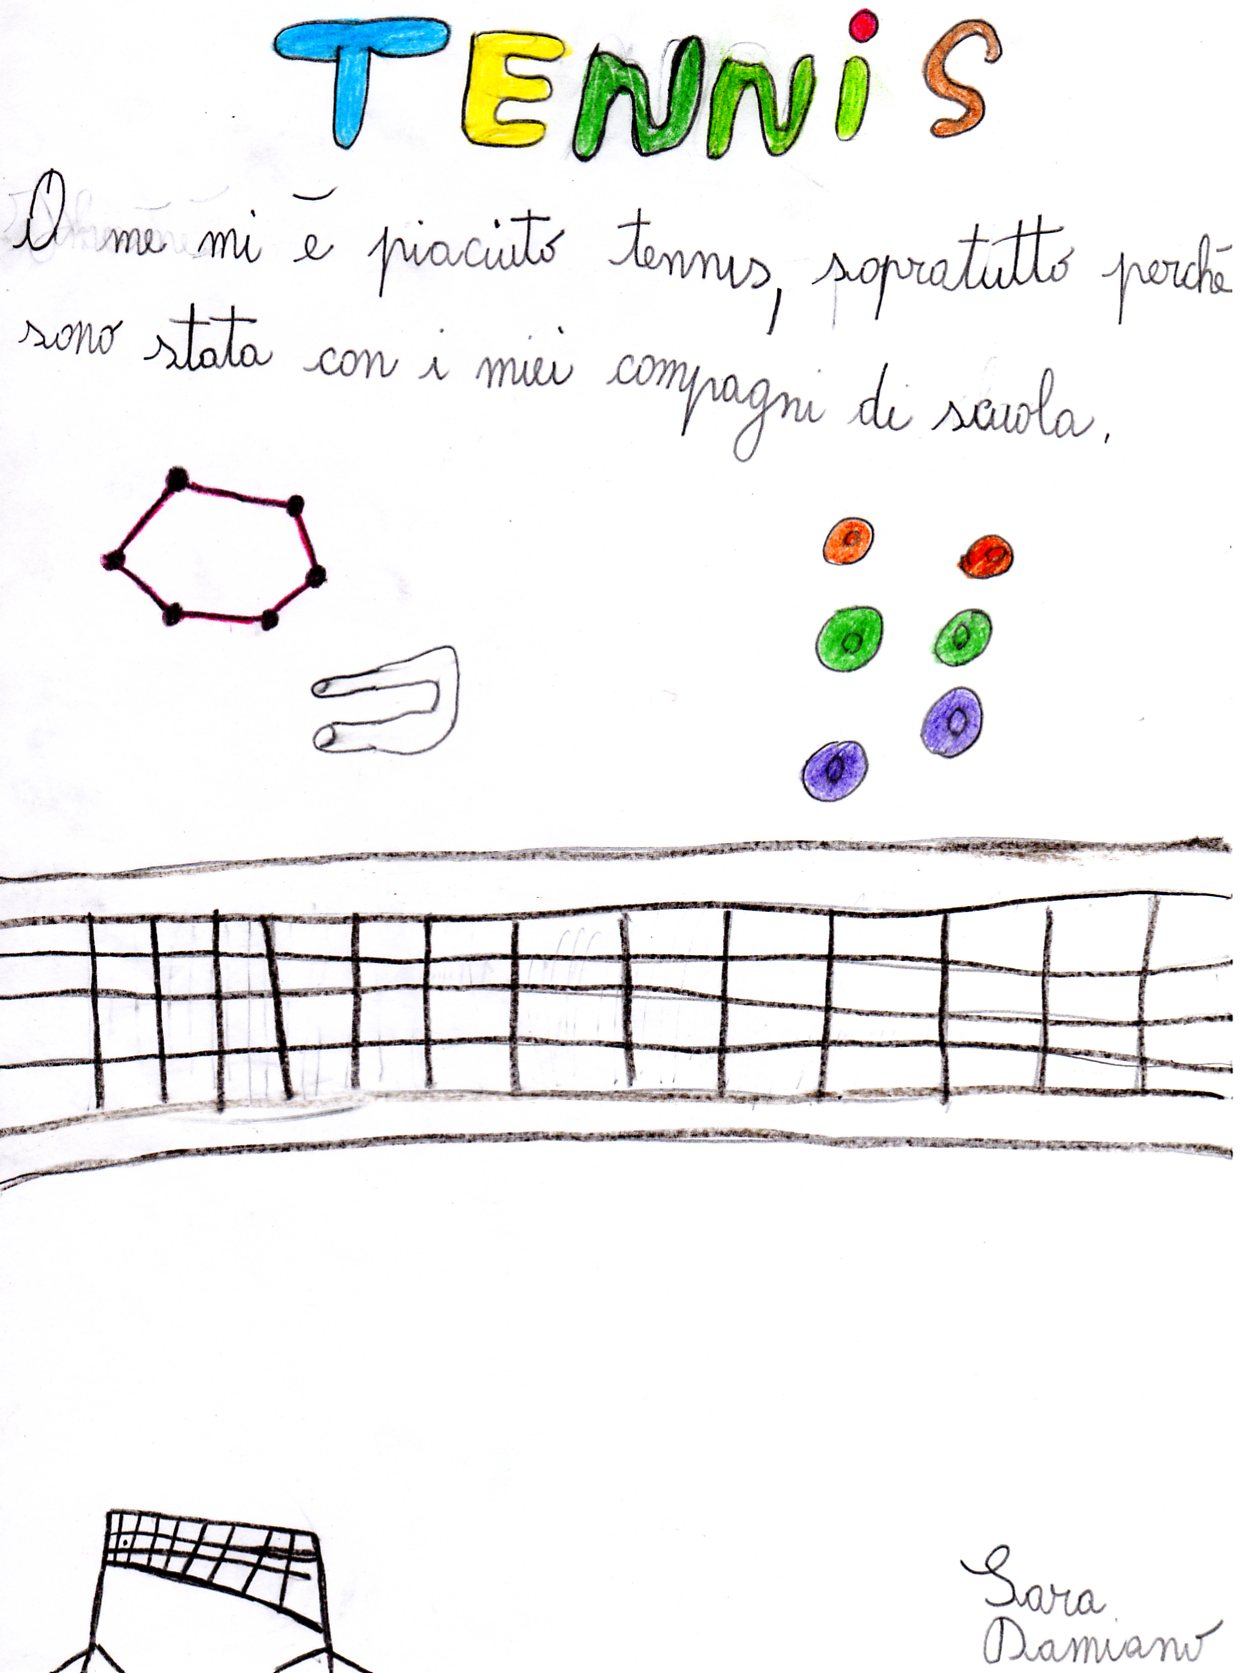 TENNiS
A me mi è piaciuto tennis, sopratutto perchè
sono stata con i miei compagni di scuola.
Sara
Damiano